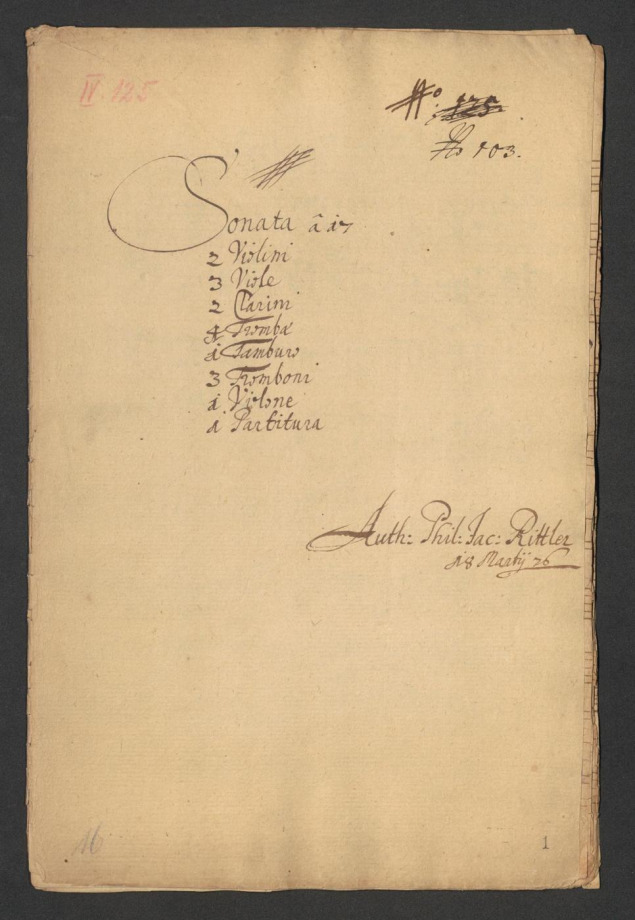 IV. 125
No. 125
No 103.
Sonata â 17
2 Violini
3 Viole
2 Clarini
4 Tromba
1 Tamburo
3 Tromboni
1 Violone
1 Partitura
Auth: Phil: Jac: Rittler
18 Martij 76
16
1